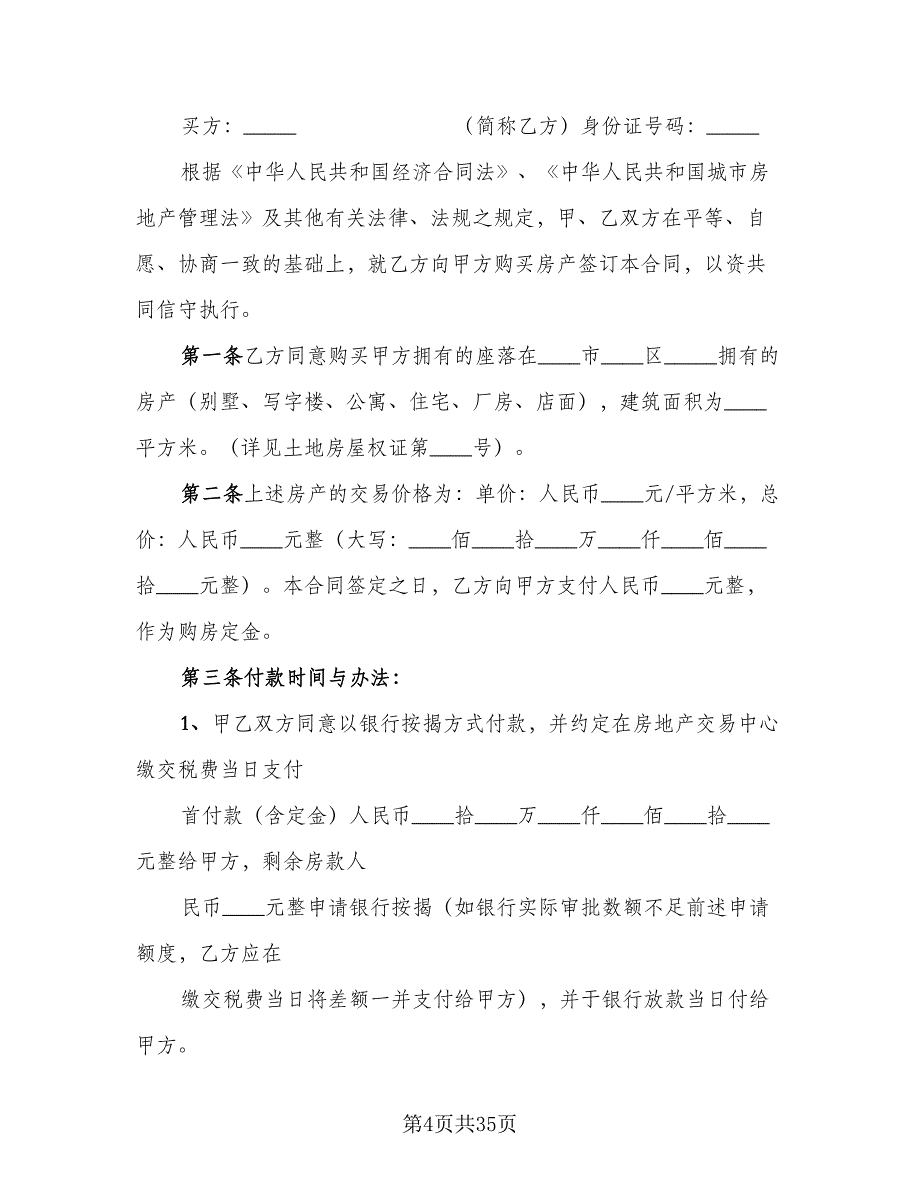 买方：_____ （简称乙方）身份证号码：_____
根据《中华人民共和国经济合同法》、《中华人民共和国城市房
地产管理法》及其他有关法律、法规之规定，甲、乙双方在平等、自
愿、协商一致的基础上，就乙方向甲方购买房产签订本合同，以资共
同信守执行。
第一条乙方同意购买甲方拥有的座落在____市____区_____拥有的
房产（别墅、写字楼、公寓、住宅、厂房、店面），建筑面积为____
平方米。（详见土地房屋权证第____号）。
第二条上述房产的交易价格为：单价：人民币____元/平方米，总
价：人民币____元整（大写：____佰____拾____万____仟____佰____
拾____元整）。本合同签定之日，乙方向甲方支付人民币____元整，
作为购房定金。
第三条付款时间与办法：
1、甲乙双方同意以银行按揭方式付款，并约定在房地产交易中心
缴交税费当日支付
首付款（含定金）人民币____拾____万____仟____佰____拾____
元整给甲方，剩余房款人
民币____元整申请银行按揭（如银行实际审批数额不足前述申请
额度，乙方应在
缴交税费当日将差额一并支付给甲方），并于银行放款当日付给
甲方。
第4页共35页